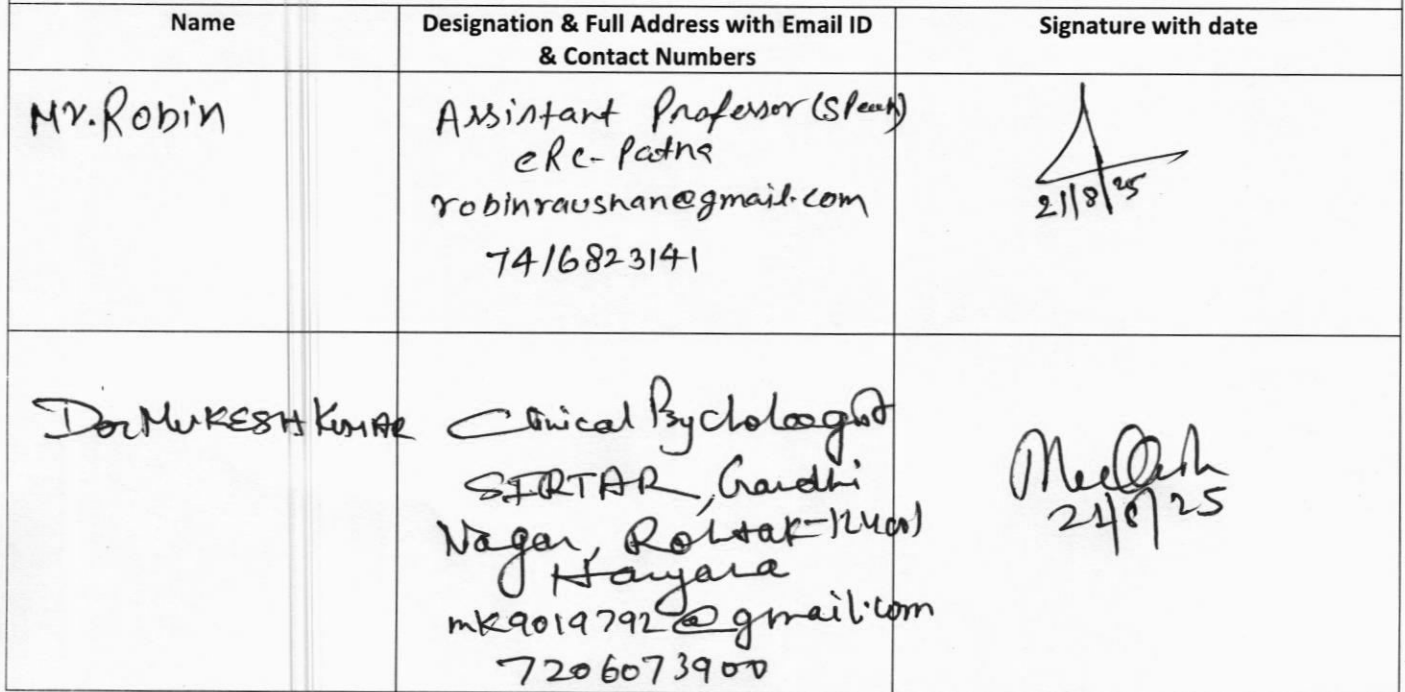 Name
Designation & Full Address with Email ID
& Contact Numbers
Signature with date
Mr. Robin
Assistant Professor (Speech)
CRC- Patna
robinraushan@gmail.com
7416823141
21/8/25
Dr Mukesh Kumar
Clinical Psychologist
SIRTAR, Gandhi
Nagar, Rohtak-124001
Haryana
mk9019792@gmail.com
7206073900
21/8/25